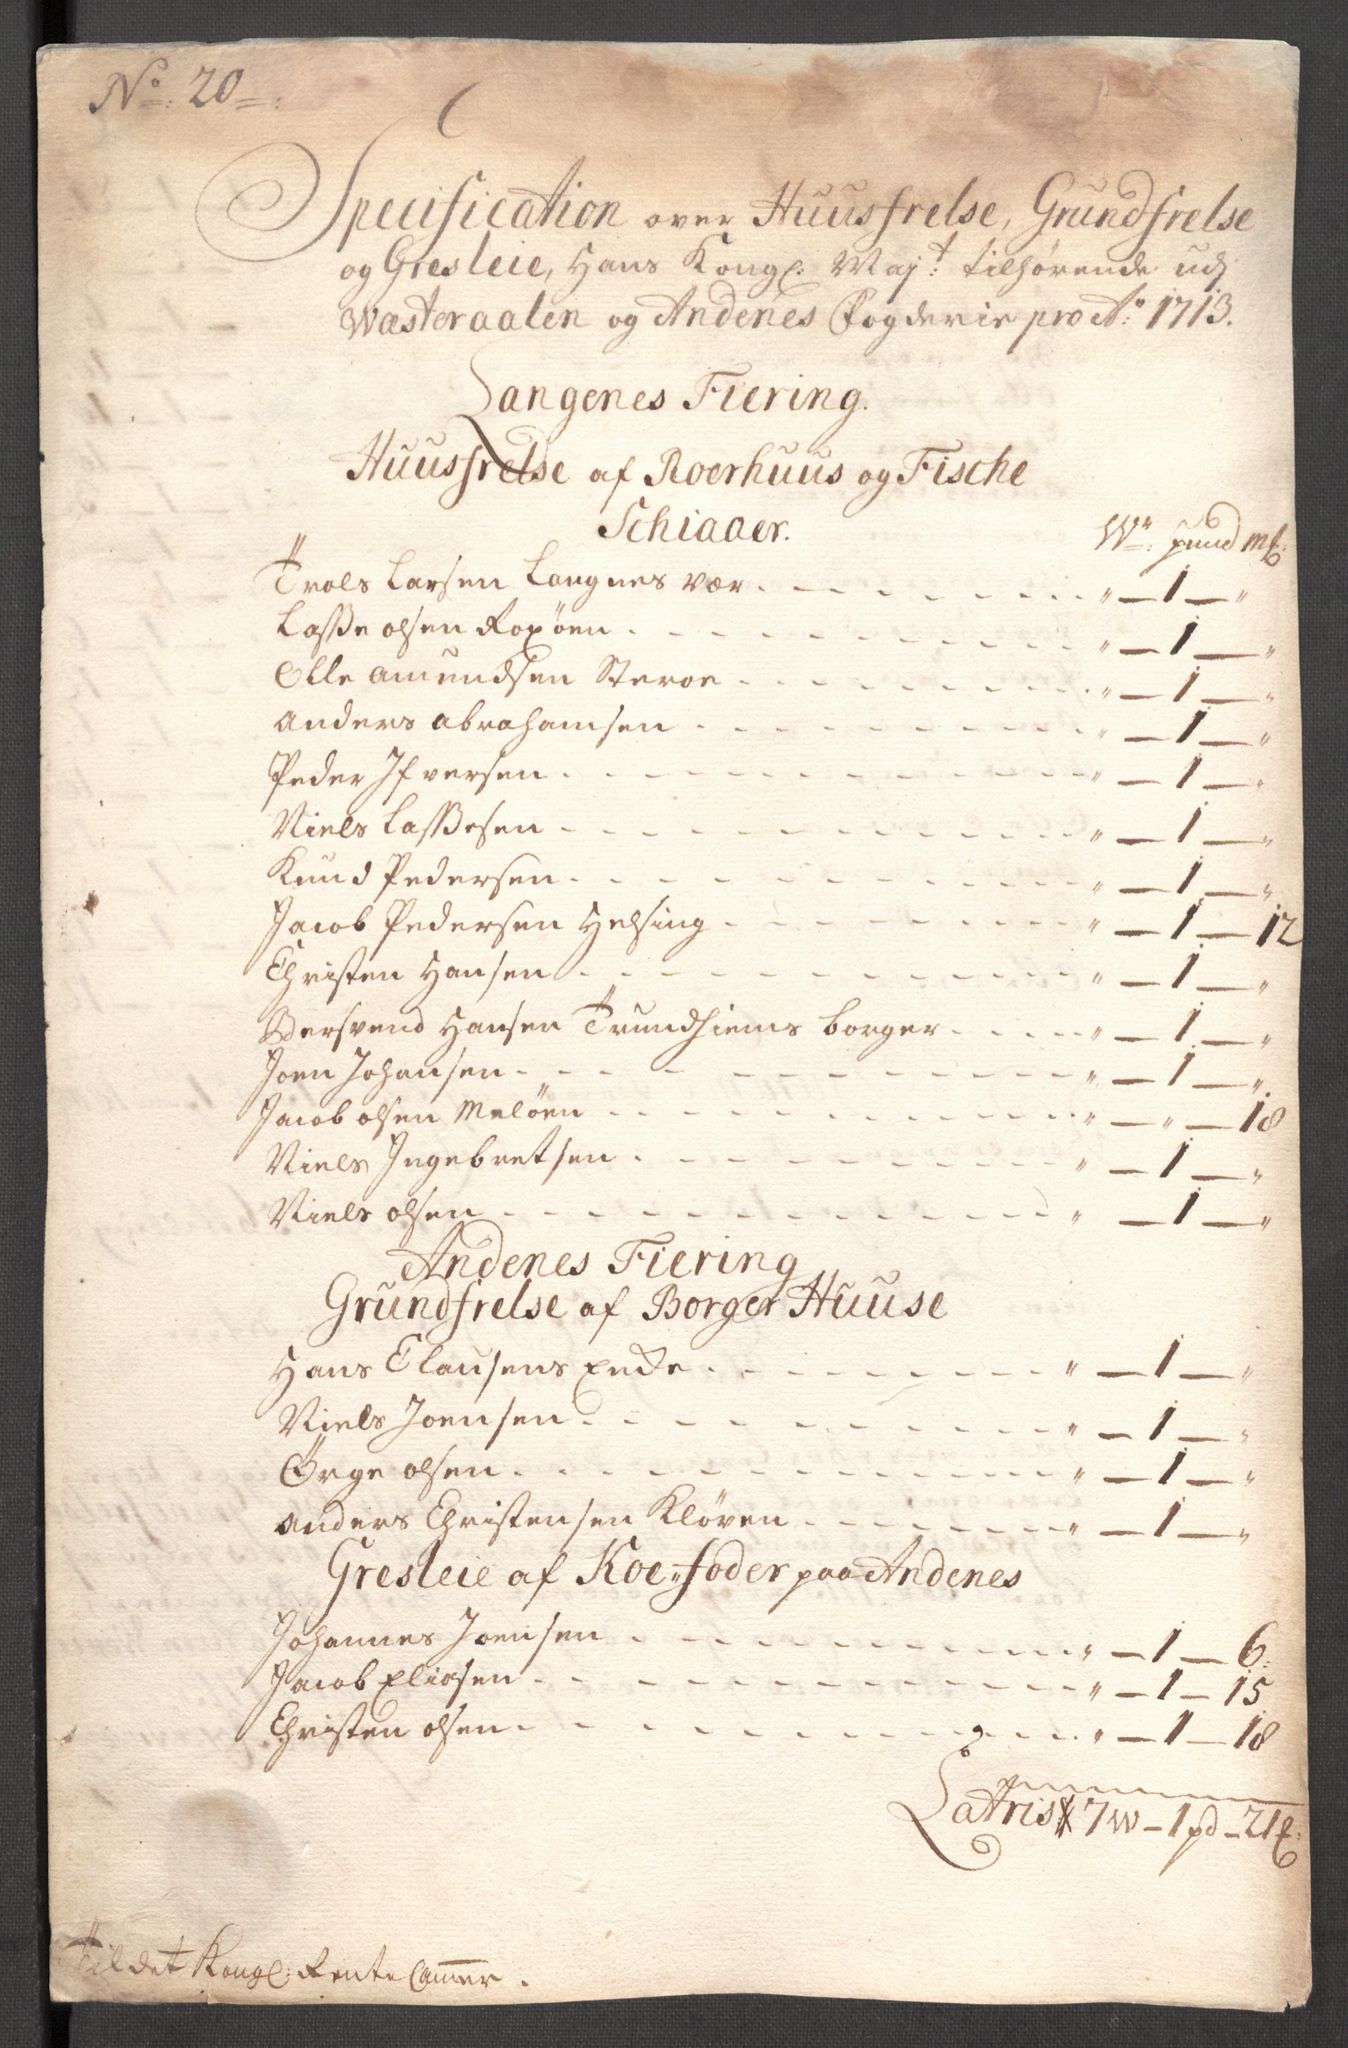 No: 20
Specification over Huusfrelse, Grundfrelse
og Gresleie, Hans Kongl: Maj:t tilhørende udj
Wæsteraalen og Andenes Fogderie pro Ao: 1713.
Langenes Fiering.
Huusfrelse af Roerhuus og Fische
Schiaaer.
W: pund mk:
Trols Larsen Langnes vær " — 1 — "
Lasse olsen Roxøen " — 1 — "
Olle Amundsen Steroe " — 1 — "
Anders Abrahamsen " — 1 — "
Peder Ifversen " — 1 — "
Niels Lassesen " — 1 — "
Knud Pedersen " — 1 — "
Jacob Pedersen Helsing " — 1 — 12
Christen Hansen " — 1 — "
Bersvend Hansen Trundhiems borger " — 1 — "
Joen Johansen " — 1 — "
Jacob olsen Meløen " — " — 18
Niels Ingebretsen " — 1 — "
Niels olsen " — 1 — "
Andenes Fiering
Grundfrelse af Borger Huuse
Hans Clausens Encke " — 1 — "
Niels Joensen " — 1 — "
Ørge olsen " — 1 — "
Anders Christensen Kløven " — 1 — "
Gresleie af Koe-foder paa Andenes
Johannes Joensen " — 1 — 6:
Jacob Eliasen " — 1 — 15
Christen olsen " — 1 — 18
Latris 7 w — 1 pd — 21
Til det Kongl: Rente Camer.